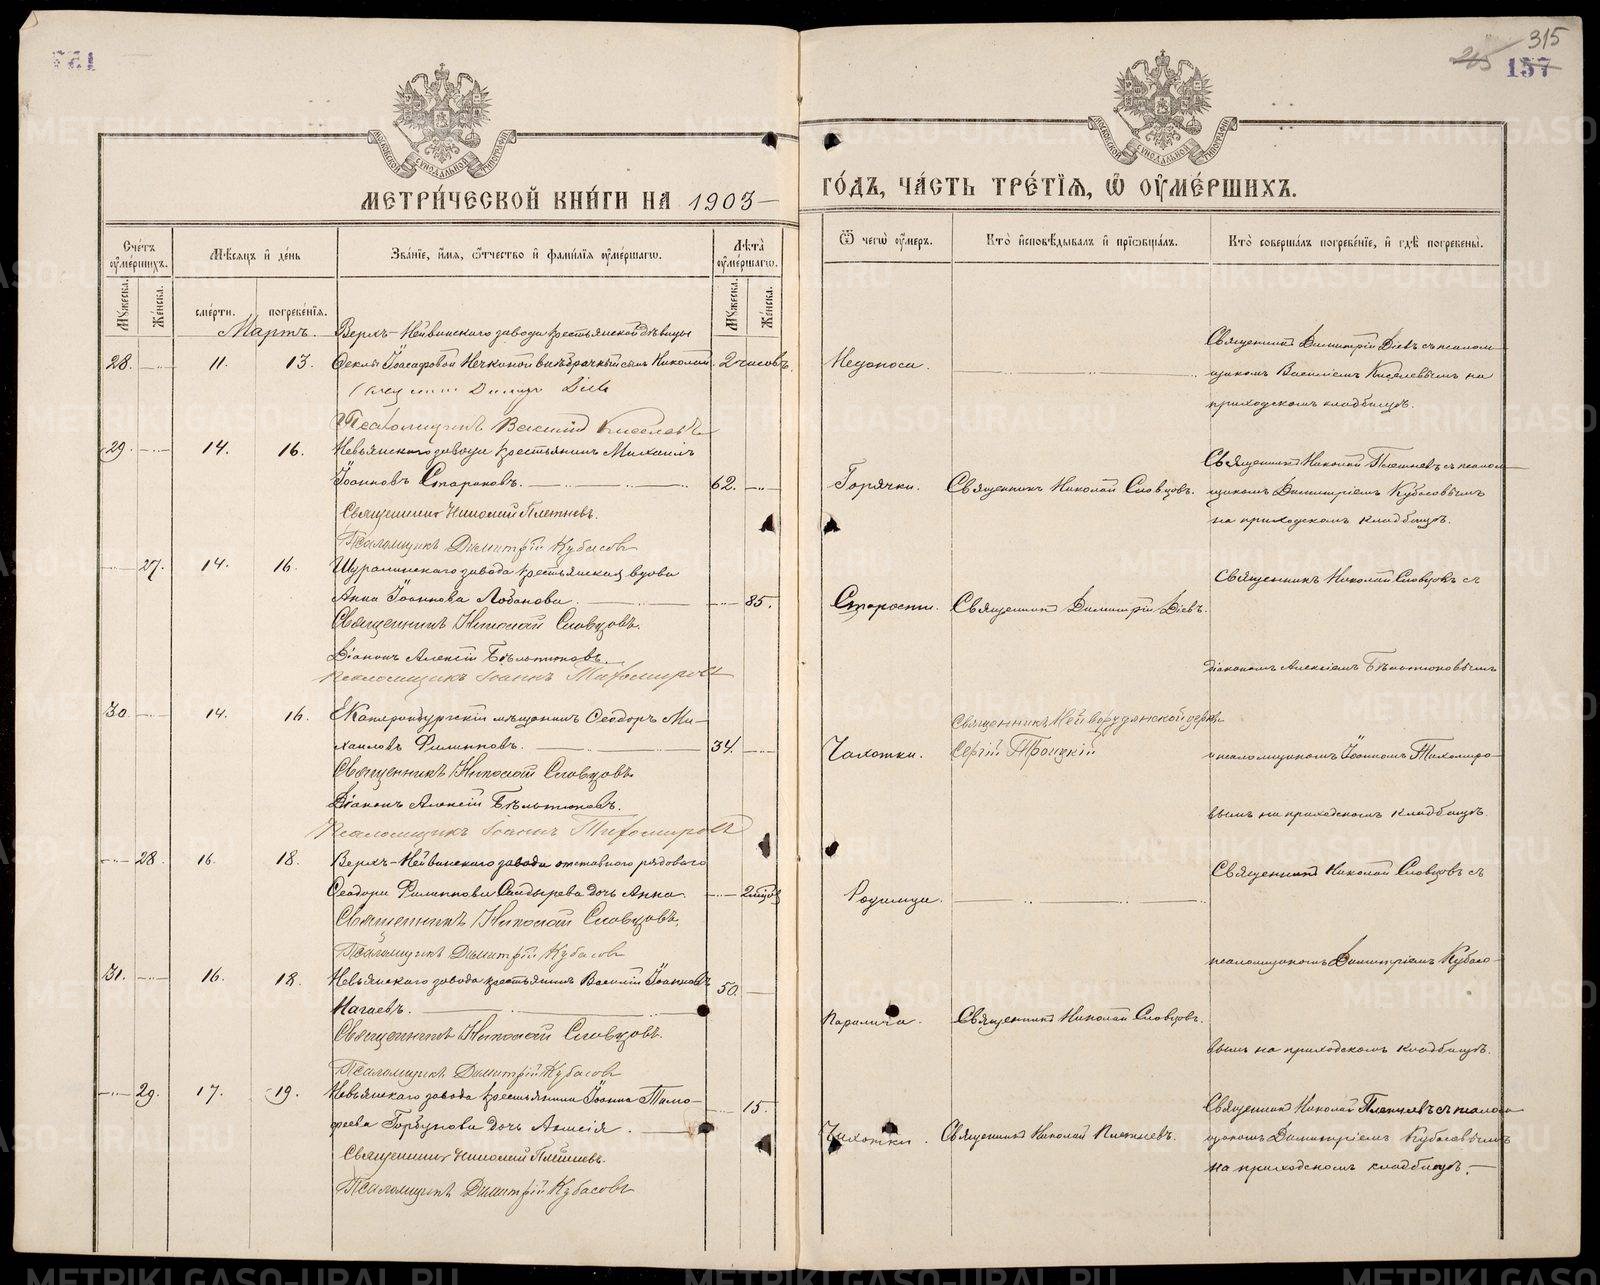 315
265
157
МЕТРИ́ЧЕСКОЙ КНИ́ГИ НА 1903
ГО́ДЪ, ЧА́СТЬ ТРЕ́ТІѦ, Ѿ ОУ҆МЕ́РШИХЪ.
МОСКОВСКОЙ СУНОДАЛЬНОЙ ТИПОГРАФІИ
МОСКОВСКОЙ СУНОДАЛЬНОЙ ТИПОГРАФІИ
Сче́тъ оу҆ме́ршихъ.
Му́жеска.
Же́нска.
Мѣ́сѧцъ и҆ де́нь
сме́рти.
погребе́нїѧ.
Зва́нїе, и҆́мѧ, ѻ҆́тчество и҆ фами́лїѧ оу҆ме́ршагѡ.
Лѣ́та оу҆ме́ршагѡ.
Му́жеска.
Же́нска.
Ѿ чегѡ̀ оу҆́меръ.
Кто̀ и҆сповѣ́дывалъ и҆ прїѡбща́лъ.
Кто̀ соверша́лъ погребе́нїе, и҆ гдѣ̀ погребены̀.
Мартъ.
Верхъ-Нейвинскаго завода крестьянской дѣвицы
28. 11. 13. Ѳеклы Іоасафовой внѣбрачный сынъ Николай 2 часовъ
Димитр Діевъ
Псаломщикъ Василій Киселевъ
Недоноса.
Священникъ Димитрій Діевъ съ псалом-
щикомъ Василіемъ Киселевымъ на
приходскомъ кладбищѣ.
29. 14. 16. Невьянскаго завода крестьянинъ Михаилъ
Іоанновъ Стариковъ. 62.
Священникъ Николай Плетневъ.
Псаломщикъ Димитрій Кубасовъ
Горячки. Священникъ Николай Словцовъ.
Священникъ Николай Плетневъ съ псалом-
щикомъ Димитріемъ Кубасовымъ
на приходскомъ кладбищѣ.
27. 14. 16. Шуралинскаго завода крестьянская вдова
Анна Іоаннова Лобанова. 85.
Священникъ Николай Словцовъ.
Діаконъ Алексій Бѣльтюковъ.
Псаломщикъ Іоаннъ Тихомировъ
Старости. Священникъ Димитрій Діевъ.
Священникъ Николай Словцовъ съ
діакономъ Алексіемъ Бѣльтюковымъ
30. 14. 16. Екатеринбургскій мѣщанинъ Ѳеодоръ Ми-
хаиловъ Филипповъ. 34.
Священникъ Николай Словцовъ.
Діаконъ Алексій Бѣльтюковъ.
Псаломщикъ Іоаннъ Тихомировъ
Чахотки.
Священникъ Нейворудянской церкви
Сергій Троицкій
и псаломщикомъ Іоанномъ Тихомиро-
вымъ на приходскомъ кладбищѣ.
28. 16. 18. Верхъ-Нейвинскаго завода отставного рядового
Ѳеодора Филиппова дочь Анна. 2 мѣсяц
Священникъ Николай Словцовъ.
Псаломщикъ Димитрій Кубасовъ
Родимца.
Священникъ Николай Словцовъ съ
псаломщикомъ Димитріемъ Кубасо-
вымъ на приходскомъ кладбищѣ.
31. 16. 18. Невьянскаго завода крестьянинъ Василій Іоанновъ
Нагаевъ. 50.
Священникъ Николай Словцовъ.
Псаломщикъ Димитрій Кубасовъ
Паралича. Священникъ Николай Словцовъ.
29. 17. 19. Невьянскаго завода крестьянина Іоанна Тимо-
феева Горбунова дочь Анисія. 15.
Священникъ Николай Плетневъ.
Псаломщикъ Димитрій Кубасовъ
Чахотки. Священникъ Николай Плетневъ.
Священникъ Николай Плетневъ съ псалом-
щикомъ Димитріемъ Кубасовымъ
на приходскомъ кладбищѣ.
METRIKI.GASO-URAL.RU